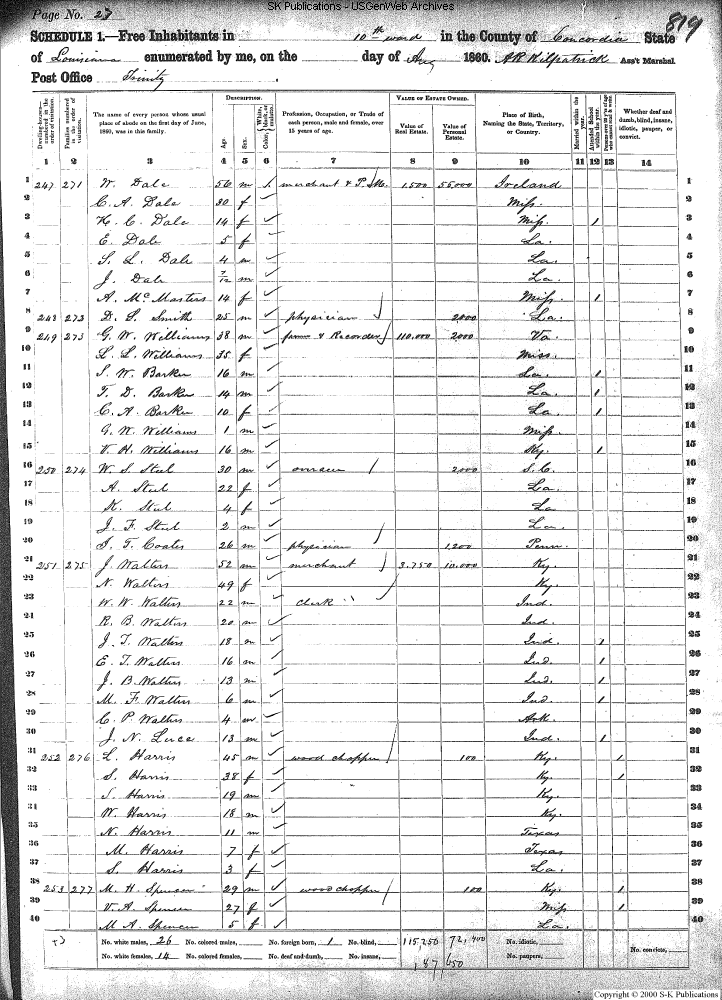 SK Publications - USGenWeb Archives
Page No. 23
819
SCHEDULE 1.—Free Inhabitants in 10th ward in the County of Concordia State
of Louisiana enumerated by me, on the day of Aug 1860. A R Kilpatrick Ass't Marshal.
Post Office Trinity
Dwelling-houses—numbered in the order of visitation.
Families numbered in the order of visitation.
The name of every person whose usual place of abode on the first day of June, 1860, was in this family.
DESCRIPTION.
Age.
Sex.
Color, White, black, or mulatto.
Profession, Occupation, or Trade of each person, male and female, over 15 years of age.
VALUE OF ESTATE OWNED.
Value of Real Estate.
Value of Personal Estate.
Place of Birth, Naming the State, Territory, or Country.
Married within the year.
Attended School within the year.
Whether deaf and dumb, blind, insane, idiotic, pauper, or convict.
1 2 3 4 5 6 7 8 9 10 11 12 13 14
1 247 271 W. Dale 56 m merchant & P. M. 1,500 55,000 Ireland 1
2 C. A. Dale 30 f Miss. 2
3 H. C. Dale 14 f Miss. 1 3
4 E. Dale 5 f La. 4
5 S. L. Dale 4 m La. 5
6 J. Dale 7/12 m La. 6
7 A. McMasters 14 f Miss. 1 7
8 248 272 D. S. Smith 25 m physician 2000 La. 8
9 249 273 G. W. Williams 38 m & Recorder 110,000 2000 Va. 9
10 L. L. Williams 35 f Miss. 10
11 S. W. Barker 16 m La. 1 11
12 T. D. Barker 14 m La. 1 12
13 C. A. Barker 10 f La. 1 13
14 G. W. Williams 1 m Miss. 14
15 V. H. Williams 16 m Ky. 1 15
16 250 274 W. S. Steel 30 m 2,000 S.C. 16
17 A. Steel 22 f La. 17
18 K. Steel 4 f La 18
19 J. F. Steel 2 m La. 19
20 J. T. Coates 26 m physician 1,200 Penn. 20
21 251 275 J. Walters 52 m merchant 3,750 10,000 Ky. 21
22 N. Walters 49 f Ky. 22
23 W. W. Walters 22 m Clerk Ind. 23
24 R. B. Walters 20 m Ind. 24
25 J. T. Walters 18 m Ind. 1 25
26 E. T. Walters 16 m Ind. 1 26
27 J. B. Walters 13 m Ind. 1 27
28 M. F. Walters 6 m Ind 1 28
29 C. P. Walters 4 m Ark. 29
30 J. N. Luce 13 m Ind. 1 30
31 252 276 L. Harris 45 m wood chopper 100 Ky. 1 31
32 S. Harris 38 f Ky. 1 32
33 J. Harris 19 m Ky. 33
34 W. Harris 18 m Ky. 34
35 N. Harris 11 m Texas 35
36 M. Harris 7 f Texas 36
37 S. Harris 3 f La. 37
38 253 277 M. H. Spencer 29 m wood chopper 100 Ky. 1 38
39 V. A. Spencer 27 f Miss 1 39
40 M A Spencer 5 f La. 40
No. white males, 26 No. colored males, No. foreign born, 1 No. blind, 115,250 72,400 No. idiotic,
No. white females, 14 No. colored females, No. deaf and dumb, No. insane, 187,650 No. paupers, No. convicts,
Copyright © 2000 S-K Publications